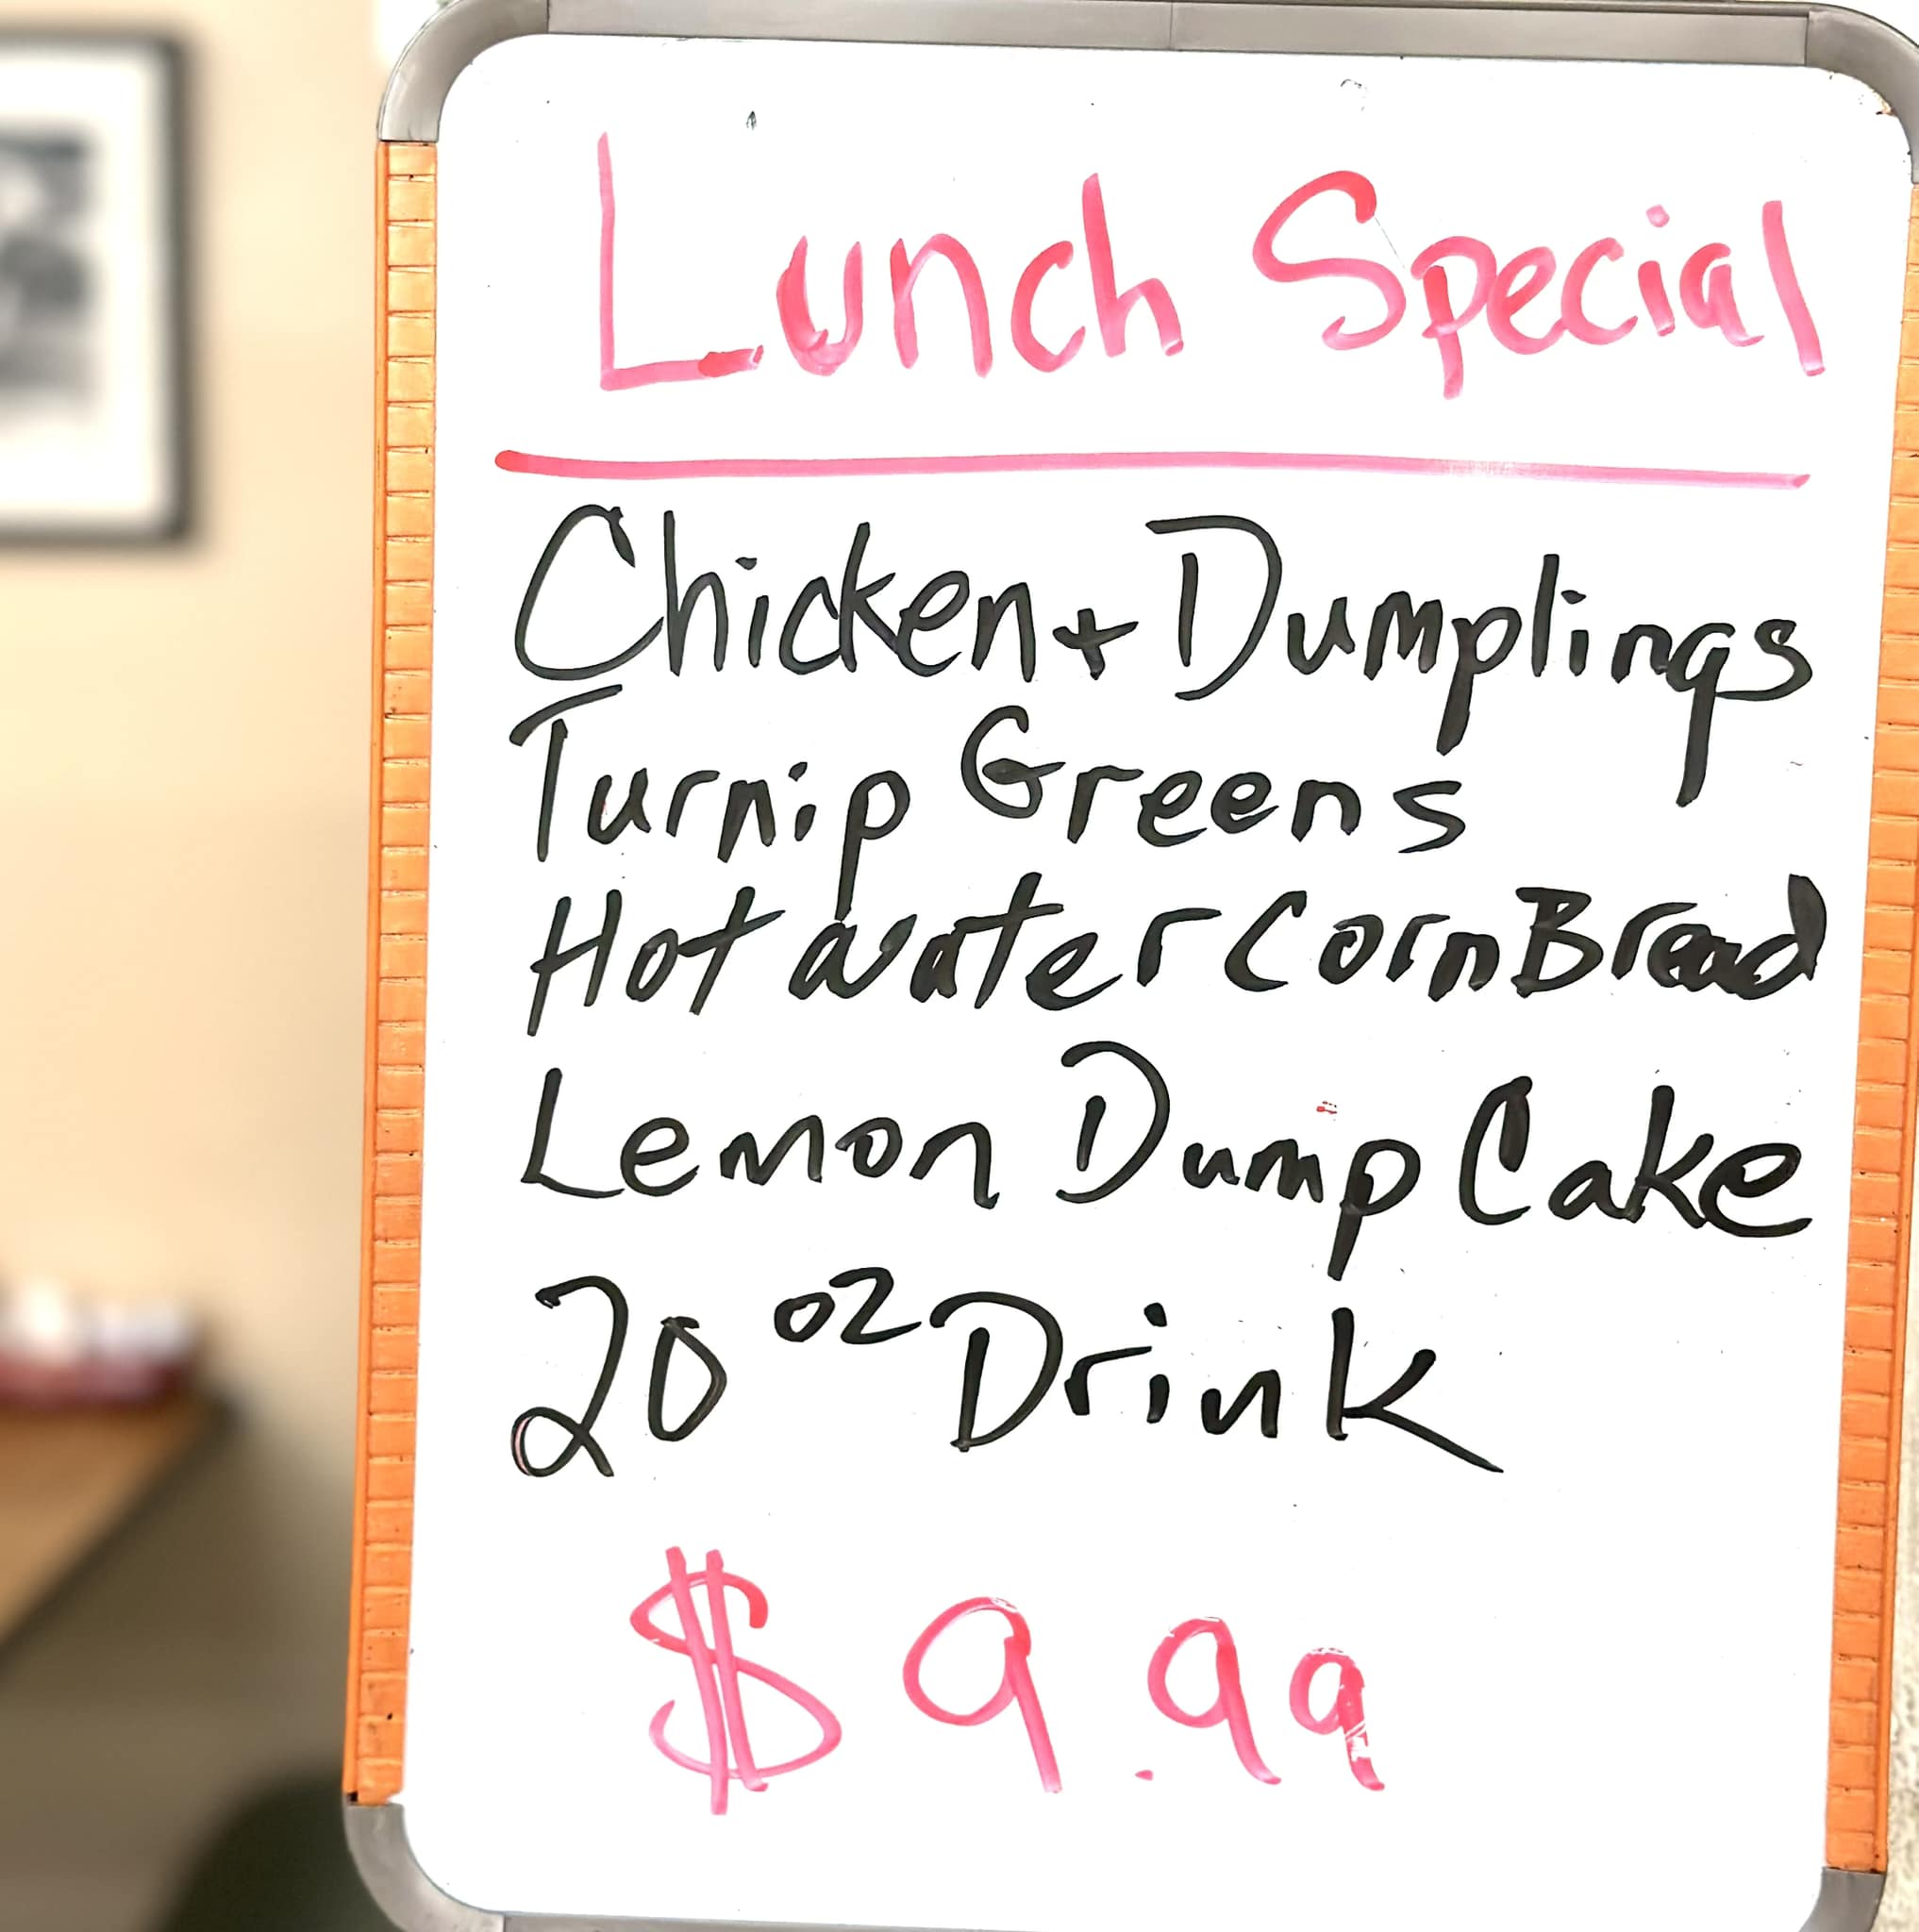 Lunch Special
Chicken + Dumplings
Turnip Greens
Hot water Corn Bread
Lemon Dump Cake
20 oz Drink
$9.99